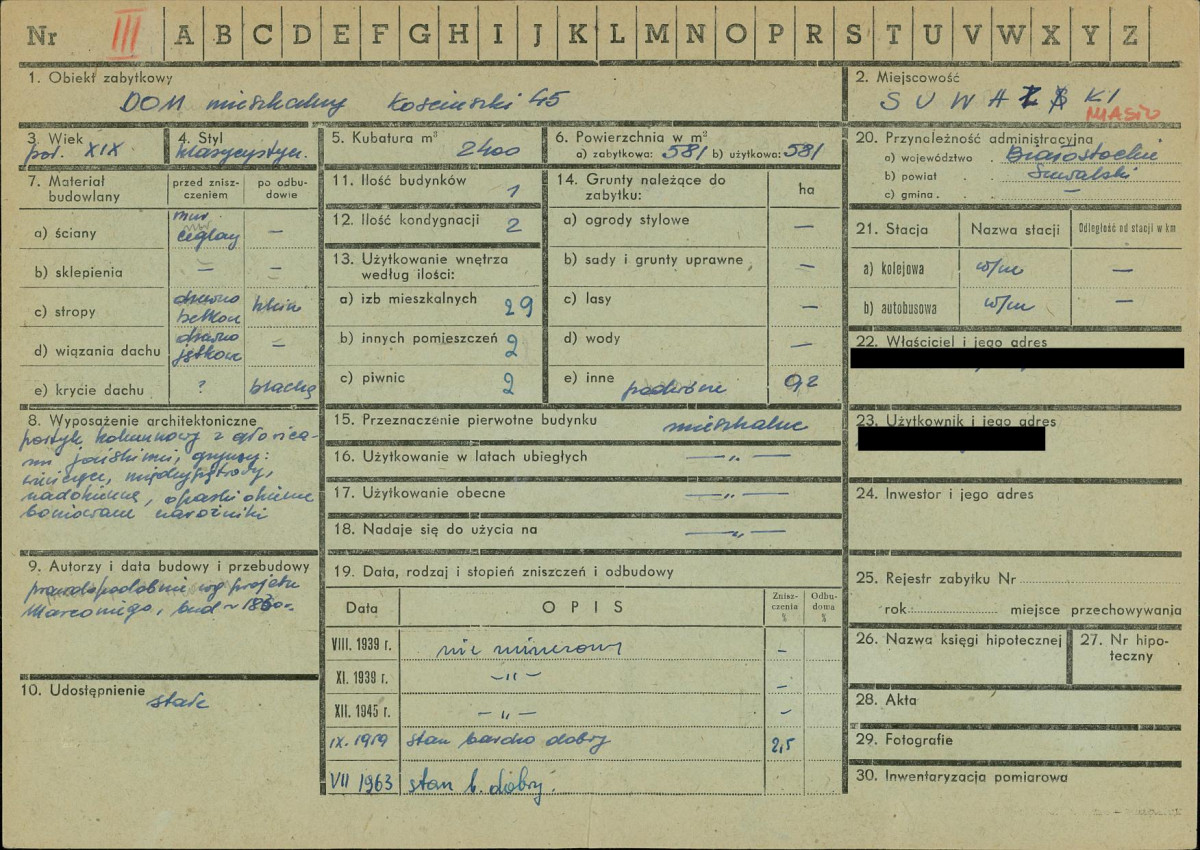 Nr III A B C D E F G H I J K L M N O P R S T U V W X Y Z
1. Obiekt zabytkowy
DOM mieszkalny Kościuszki 45
2. Miejscowość
SUWAŁKI
MIASTO
3. Wiek
poł. XIX
4. Styl
klasycystycz.
5. Kubatura m³
2400
6. Powierzchnia w m²
a) zabytkowa: 581 b) użytkowa: 581
7. Materiał budowlany
przed znisz-
czeniem
po odbu-
dowie
a) ściany
mur.
ceglany —
b) sklepienia — —
c) stropy
drewno
belkow
d) wiązania dachu
drewno
jętkow —
e) krycie dachu ? blachą
8. Wyposażenie architektoniczne
portyk kolumnowy z głowica-
mi jońskimi, gzymsy:
wieńczące, międzypiętrowy,
nadokienne, opaski okienne
boniowane narożniki
9. Autorzy i data budowy i przebudowy
prawdopodobnie wg projektu
Marconiego, bud ~ 1830 r.
10. Udostępnienie
stałe
11. Ilość budynków 1
12. Ilość kondygnacji 2
13. Użytkowanie wnętrza
według ilości:
a) izb mieszkalnych 29
b) innych pomieszczeń 2
c) piwnic 2
14. Grunty należące do
zabytku:
ha
a) ogrody stylowe —
b) sady i grunty uprawne —
c) lasy —
d) wody —
e) inne podwórze 0,2
15. Przeznaczenie pierwotne budynku mieszkalne
16. Użytkowanie w latach ubiegłych — „ —
17. Użytkowanie obecne — „ —
18. Nadaje się do użycia na — „ —
19. Data, rodzaj i stopień zniszczeń i odbudowy
Data OPIS
Znisz-
czenia
%
Odbu-
dowa
%
VIII. 1939 r. nie niszczony —
XI. 1939 r. — „ — —
XII. 1945 r. — „ — —
IX. 1959 stan bardzo dobry 2,5
VII 1963 stan b. dobry.
20. Przynależność administracyjna
a) województwo . Białostockie
b) powiat . Suwalski
c) gmina . —
21. Stacja Nazwa stacji Odległość od stacji w km
a) kolejowa w/m —
b) autobusowa w/m —
22. Właściciel i jego adres
23. Użytkownik i jego adres
24. Inwestor i jego adres
25. Rejestr zabytku Nr
rok: miejsce przechowywania
26. Nazwa księgi hipotecznej
27. Nr hipo-
teczny
28. Akta
29. Fotografie
30. Inwentaryzacja pomiarowa